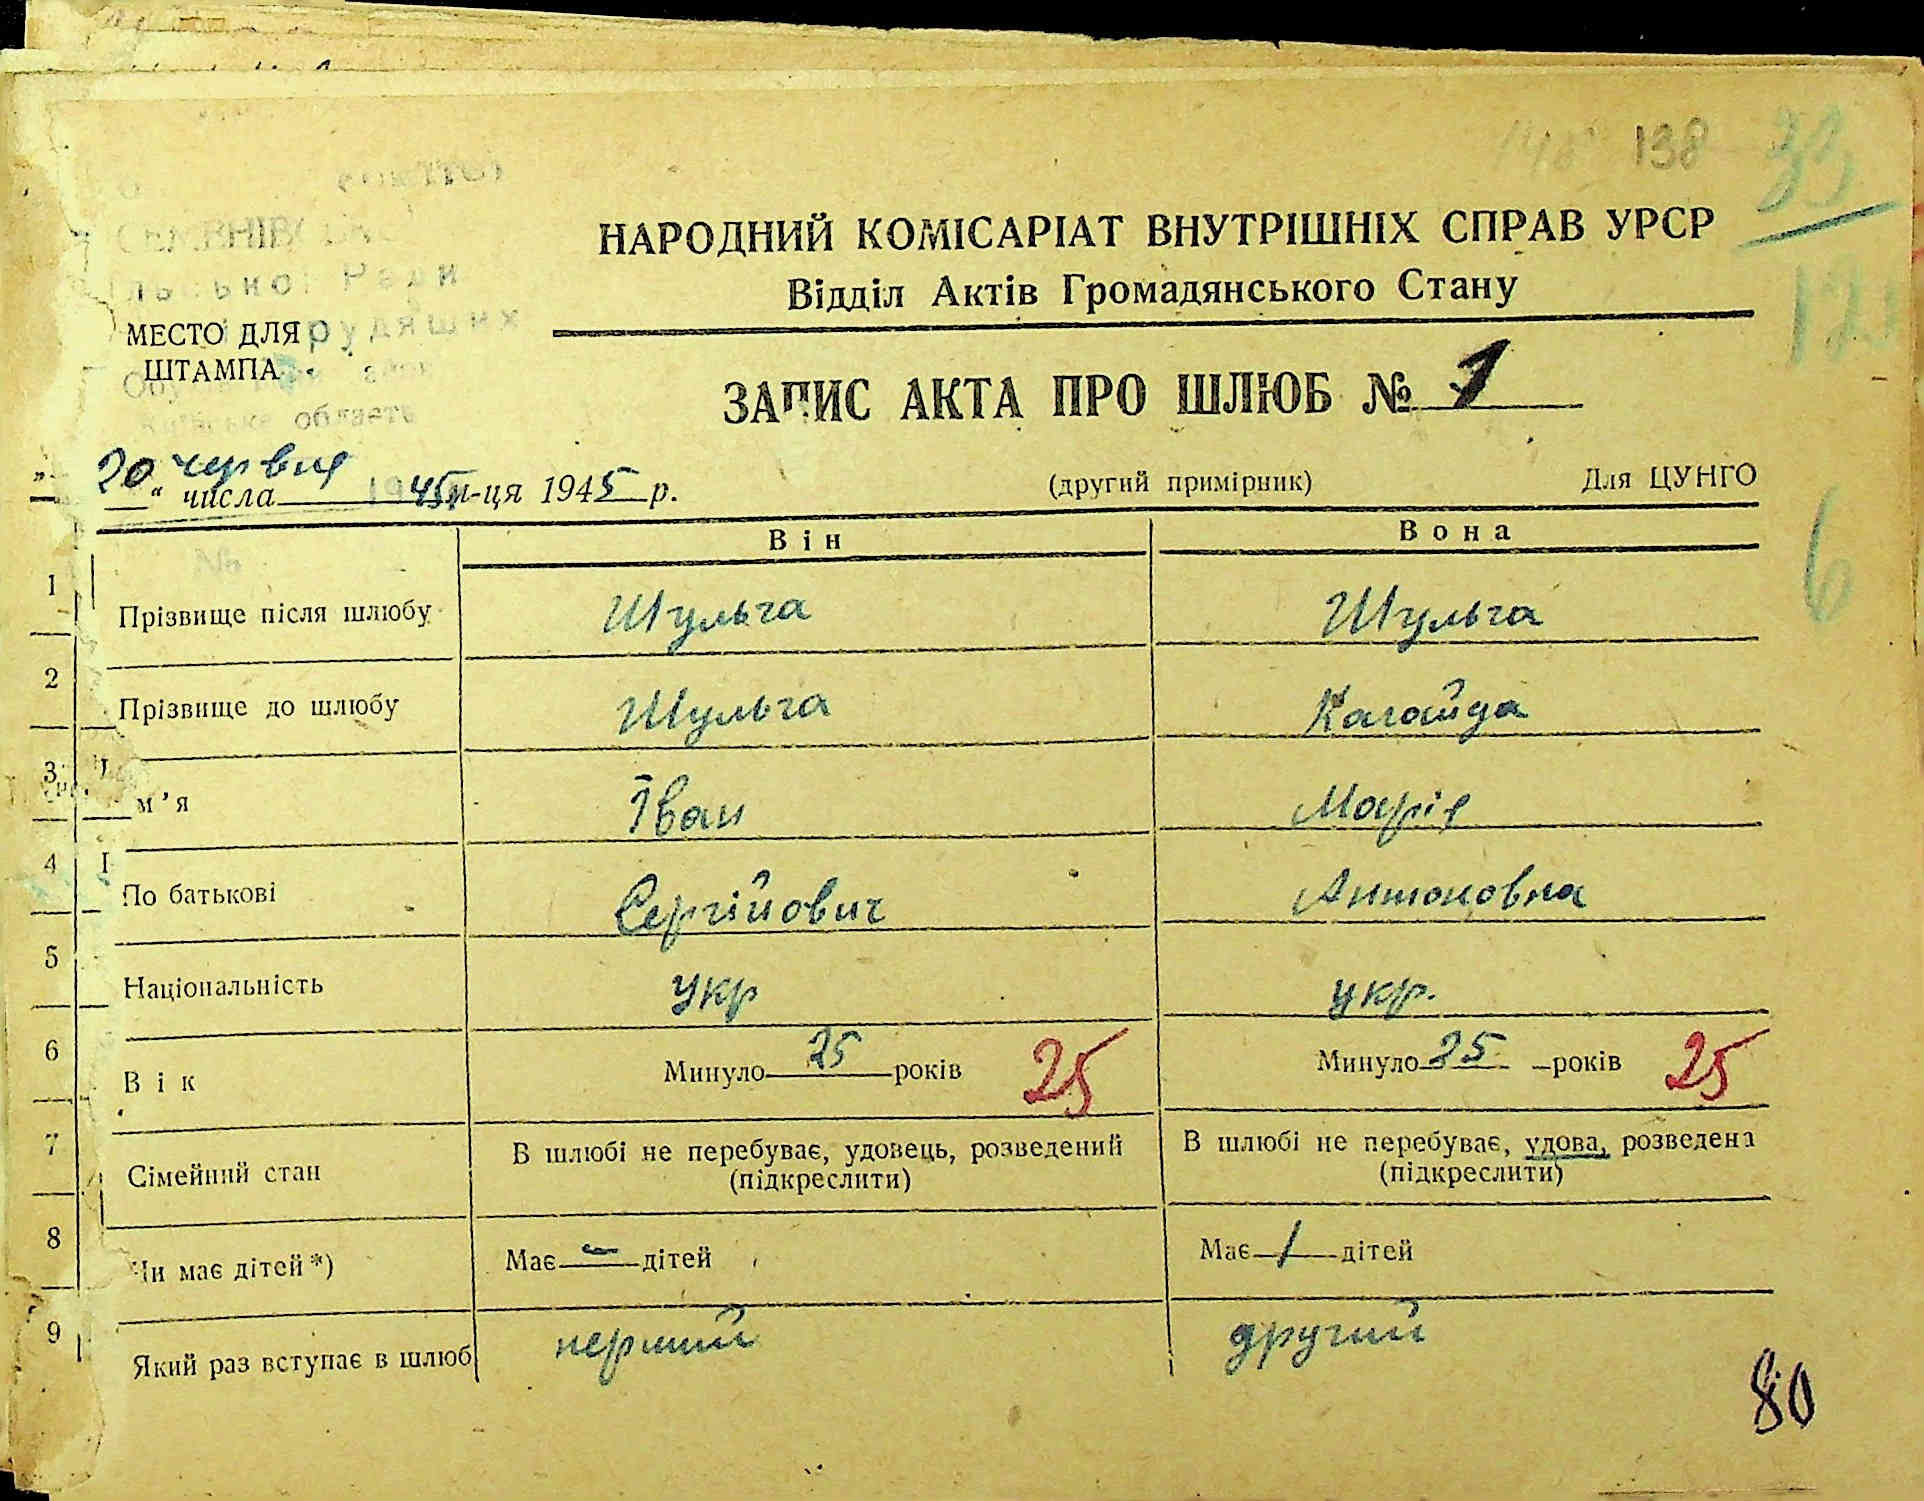 138
33
НАРОДНИЙ КОМІСАРІАТ ВНУТРІШНІХ СПРАВ УРСР
Відділ Актів Громадянського Стану
МЕСТО ДЛЯ
ШТАМПА
область
ЗАПИС АКТА ПРО ШЛЮБ № 1
„20“ числа червня м-ця 1945 р.
(другий примірник)
Для ЦУНГО
Він
Вона
6
1 Прізвище після шлюбу Шульга Шульга
2 Прізвище до шлюбу Шульга Кагайда
3 м'я Іван Марія
4 По батькові Сергійович Антоновна
5 Національність укр укр.
6 Вік Минуло 25 років 25 Минуло 25 років 25
7 Сімейний стан В шлюбі не перебуває, удовець, розведений В шлюбі не перебуває, удова, розведена
(підкреслити) (підкреслити)
8 Чи має дітей*) Має — дітей Має 1 дітей
9 Який раз вступає в шлюб перший другий
80